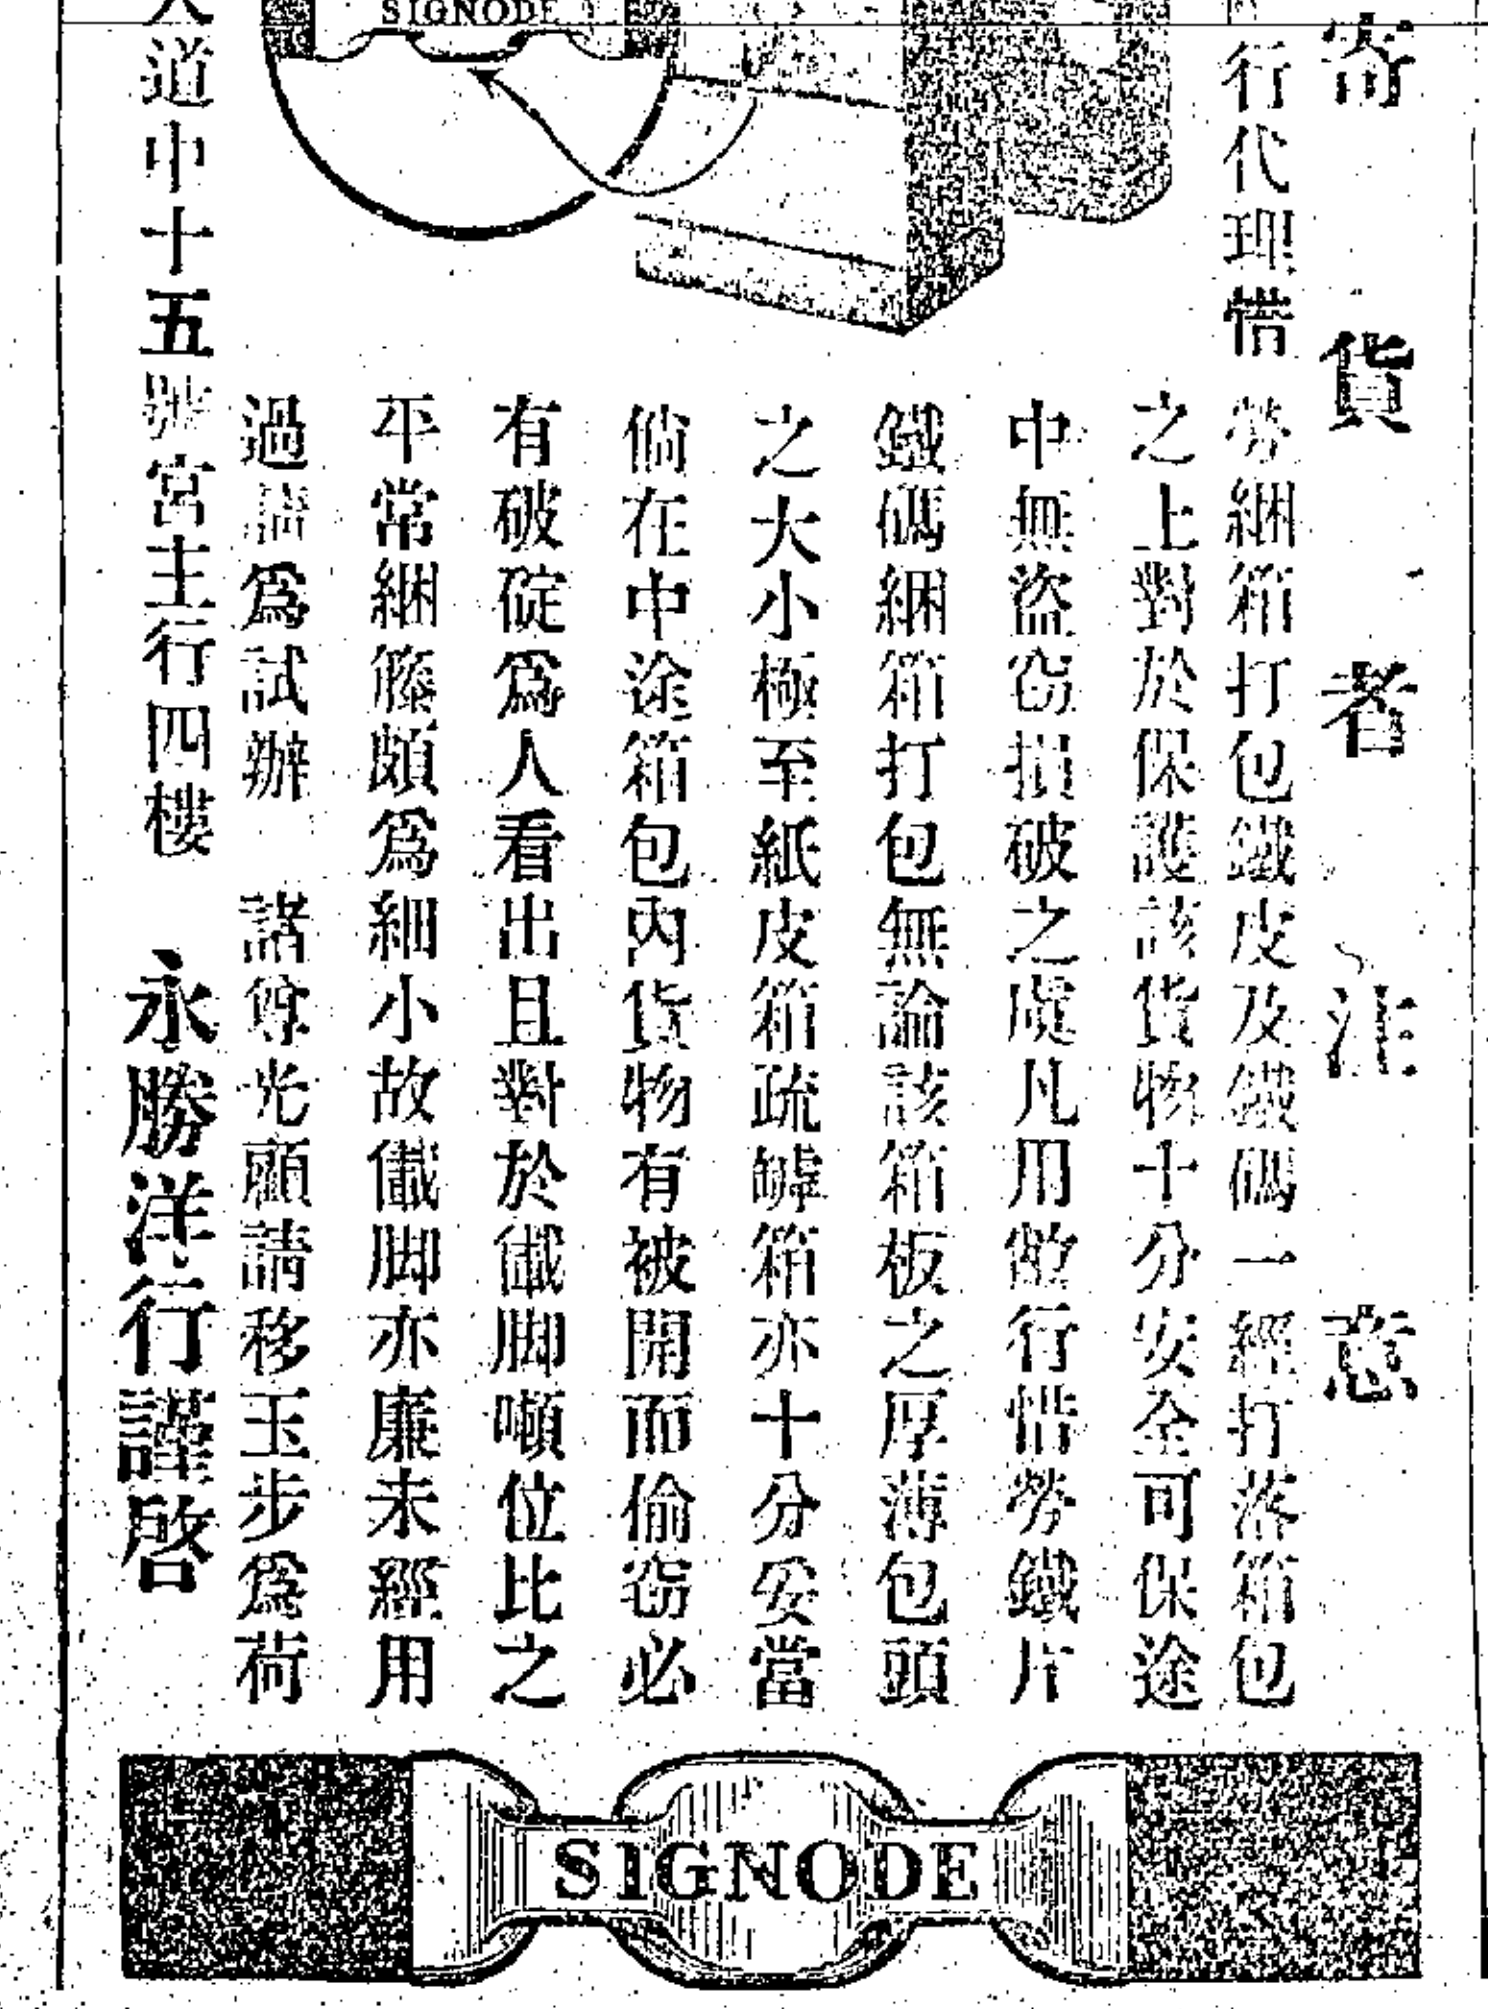 寄貨者注意
行代理惜勞綑箱打包鐵皮及鐵碼一經打落箱包
之上對於保護該貨物十分安全可保途
中無盜窃損破之處凡用敝行惜勞鐵片
鐵碼綑箱打包無論該箱板之厚薄包頭
之大小極至紙皮箱疏罅箱亦十分妥當
倘在中途箱包內貨物有被開而偷窃必
有破碇爲人看出且對於儎脚噸位比之
平常綑籐頗爲細小故儎脚亦廉未經用
過請爲試辦 諸尊光顧請移玉步爲荷
大道中十五號宮主行四樓 永勝洋行謹啓
SIGNODE
SIGNODE